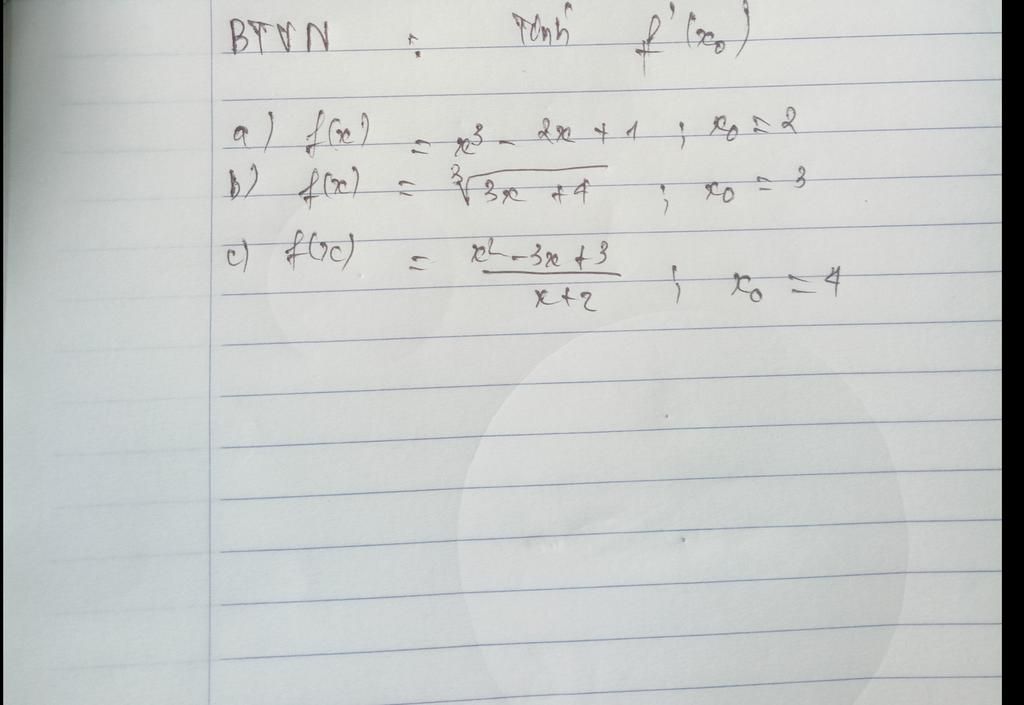 BTVN : Tính f'(x₀)
a) f(x) = x³ - 2x + 1 ; x₀ = 2
b) f(x) = ∛(3x + 4) ; x₀ = 3
c) f(x) = (x² - 3x + 3)/(x + 2) ; x₀ = 4